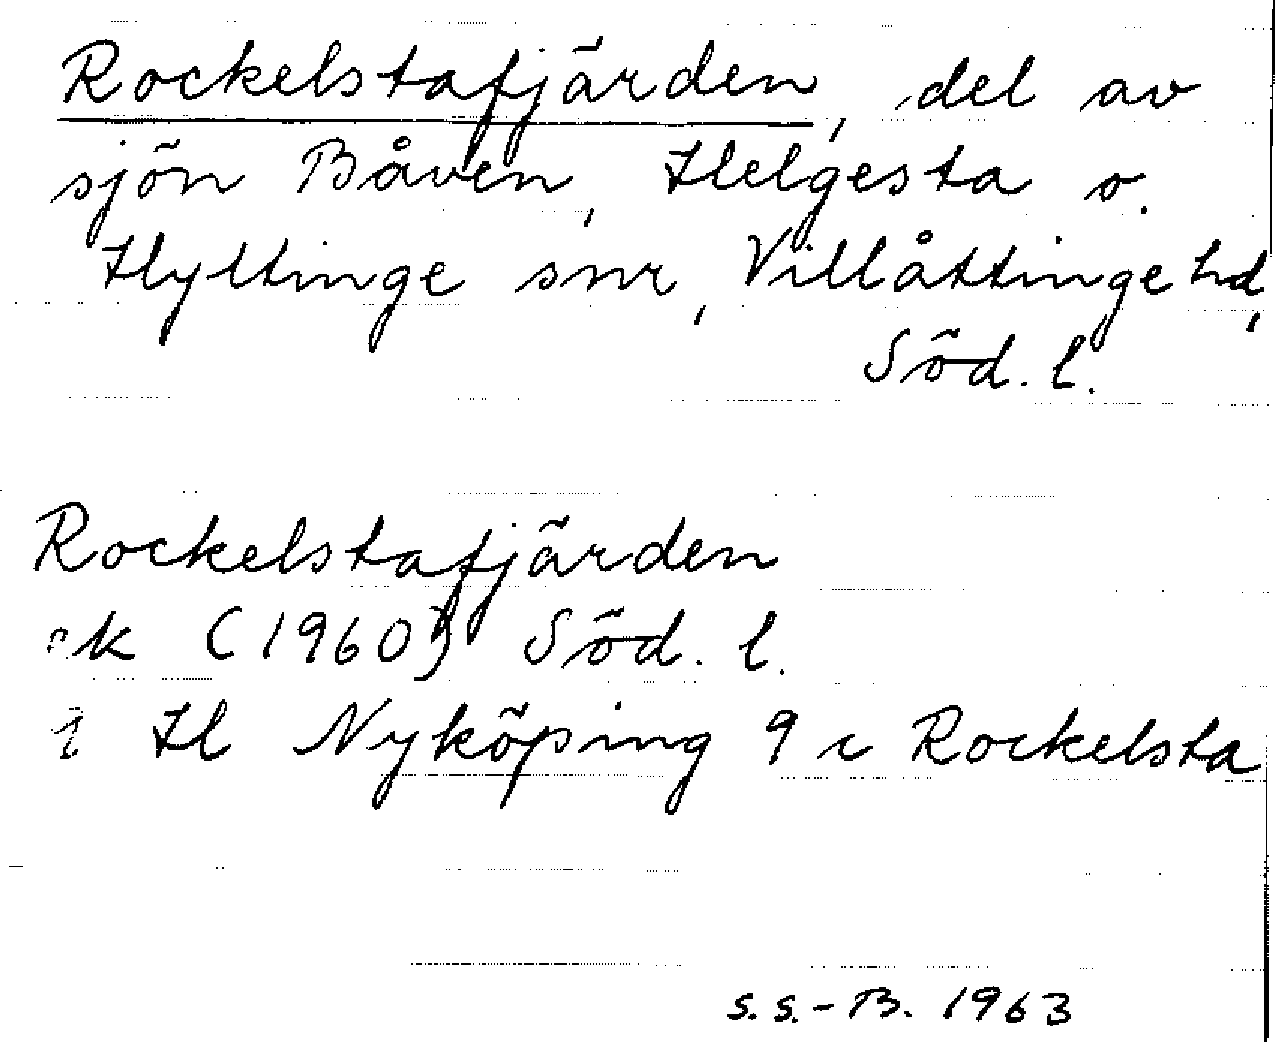 Rockelstafjärden, del av
sjön Båven, Helgesta o.
Hyltinge snr, Villåttinge hd,
Söd. l.
Rockelstafjärden
ek (1960) Söd. l.
i Hl Nyköping 9 c Rockelsta
S.S.-B. 1963